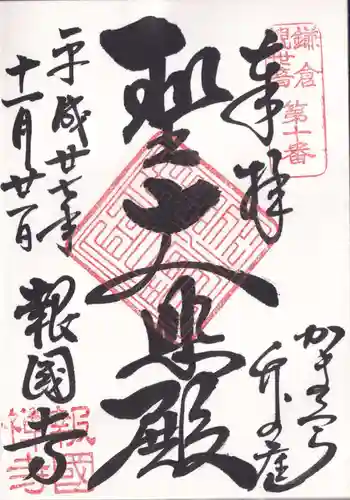 鎌倉
観世音
第十番
奉拝
聖大悲殿
かまくら
竹の庭
平成廿七年
十一月廿一日
報國寺
報國
禪寺